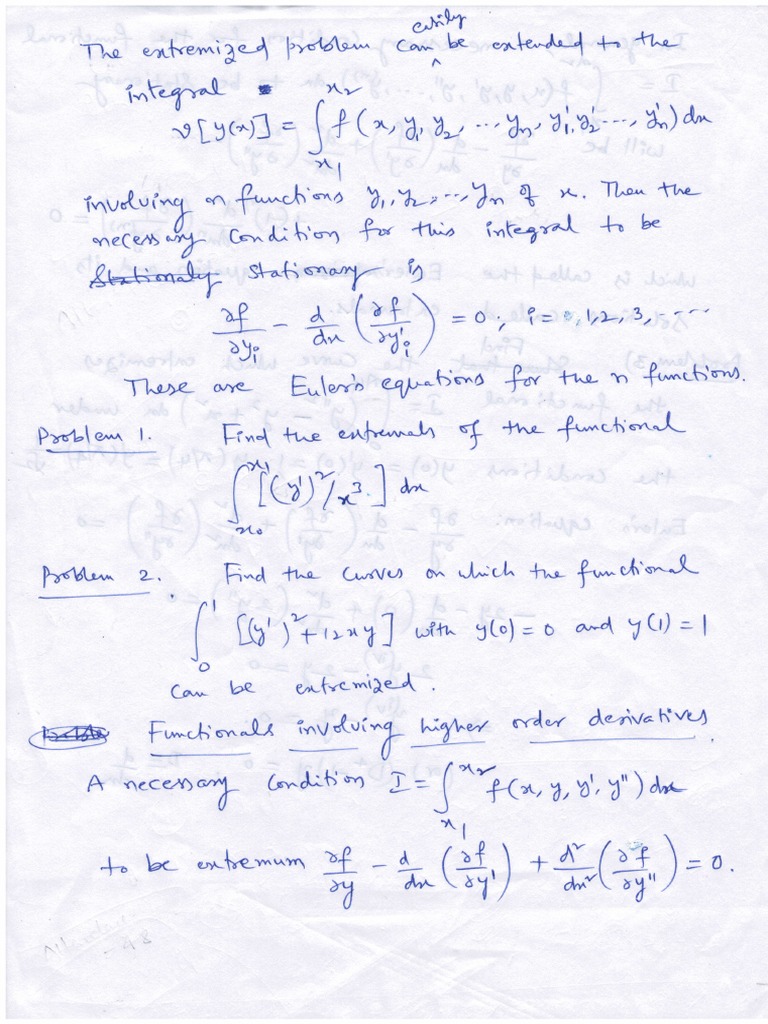 easily
The extremized problem can ^ be extended to the
integral
v[y(x)] = ∫_{x1}^{x2} f(x, y1, y2, ... yn, y1', y2' ..., yn') dx
involving n functions y1, y2, ..., yn of x. Then the
necessary condition for this integral to be
Stationary Stationary is
∂f/∂yi - d/dx (∂f/∂yi') = 0; i = 1, 2, 3, ......
These are Euler's equations for the n functions.
Problem 1. Find the extremals of the functional
∫_{x0}^{x1} [(y')²/x³] dx
Problem 2. Find the curves on which the functional
∫_0^1 [(y')² + 12xy] with y(0) = 0 and y(1) = 1
can be extremized.
Functionals involving higher order derivatives
A necessary condition I = ∫_{x1}^{x2} f(x, y, y', y'') dx
to be extremum ∂f/∂y - d/dx (∂f/∂y') + d²/dx² (∂f/∂y'') = 0.